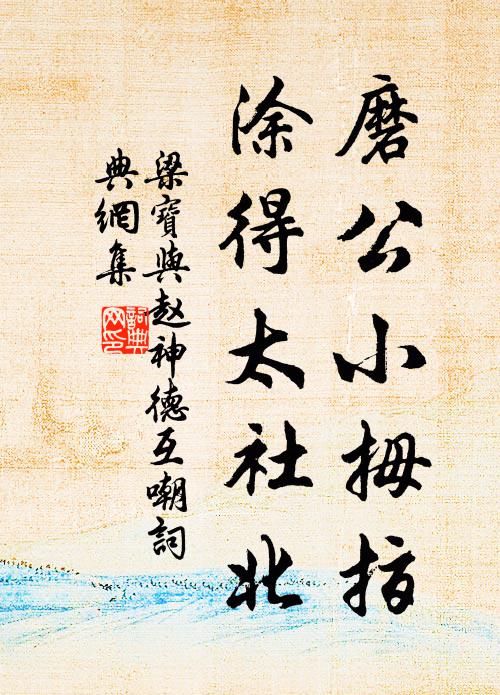 磨公小拇指
涂得太社北
梁寶與赵神德互嘲詞
典網集
詞典
网印